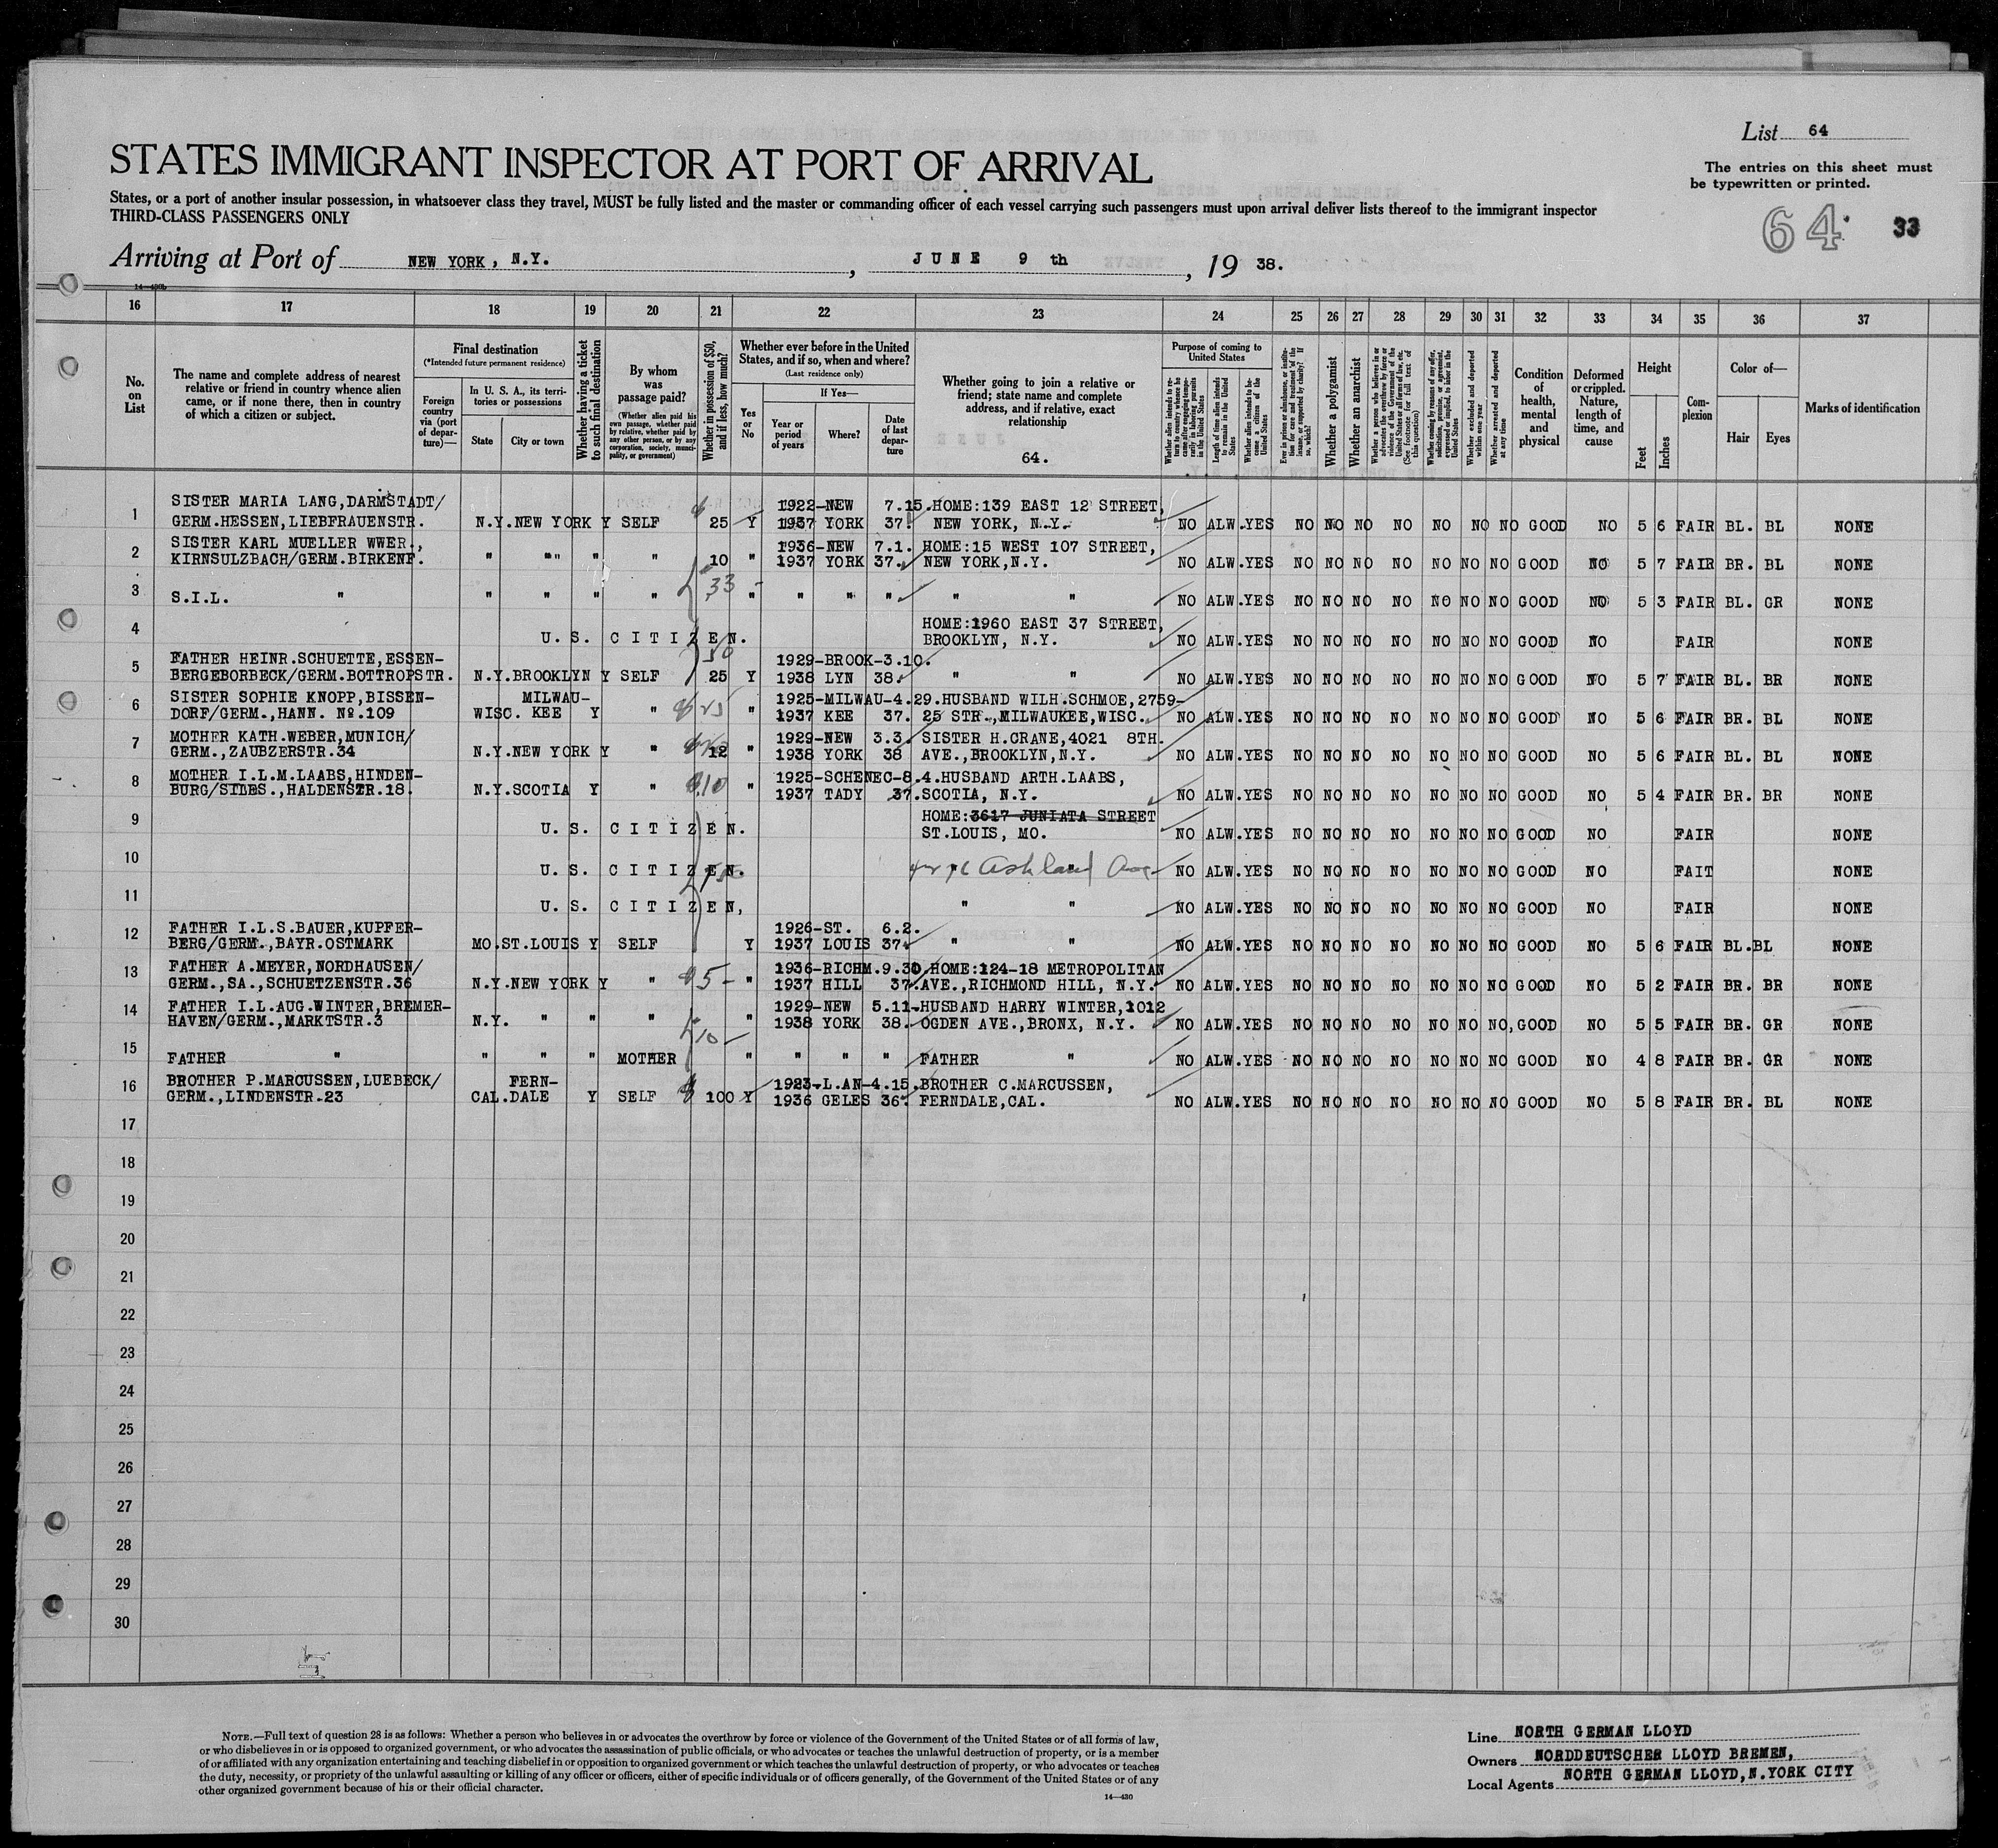 List 64
The entries on this sheet must
be typewritten or printed.
STATES IMMIGRANT INSPECTOR AT PORT OF ARRIVAL
States, or a port of another insular possession, in whatsoever class they travel, MUST be fully listed and the master or commanding officer of each vessel carrying such passengers must upon arrival deliver lists thereof to the immigrant inspector
THIRD-CLASS PASSENGERS ONLY
64 33
Arriving at Port of NEW YORK, N.Y. , JUNE 9 th , 19 38.
16 17 18 19 20 21 22 23 24 25 26 27 28 29 30 31 32 33 34 35 36 37
No. on List
The name and complete address of nearest relative or friend in country whence alien came, or if none there, then in country of which a citizen or subject.
Final destination
(*Intended future permanent residence)
Foreign country via (port of departure)—
In U. S. A., its territories or possessions
State
City or town
Whether having a ticket to such final destination
By whom was passage paid?
(Whether alien paid his own passage, whether paid by relative, whether paid by any other person, or by any corporation, society, municipality, or government)
Whether in possession of $50, and if less, how much?
Whether ever before in the United States, and if so, when and where?
(Last residence only)
Yes or No
If Yes—
Year or period of years
Where?
Date of last departure
Whether going to join a relative or friend; state name and complete address, and if relative, exact relationship
64.
Purpose of coming to United States
Length of time alien intends to remain in the United States
Whether alien intends to become a citizen of the United States
Whether a polygamist
Whether an anarchist
Whether excluded and deported within one year
Whether arrested and deported at any time
Condition of health, mental and physical
Deformed or crippled. Nature, length of time, and cause
Height
Feet
Inches
Complexion
Color of—
Hair
Eyes
Marks of identification
1 SISTER MARIA LANG,DARMSTADT/ 1922-NEW 7.15. HOME:139 EAST 12 STREET,
GERM.HESSEN,LIEBFRAUENSTR. N.Y. NEW YORK Y SELF 25 Y 1937 YORK 37. NEW YORK, N.Y. NO ALW. YES NO NO NO NO NO NO NO GOOD NO 5 6 FAIR BL. BL NONE
2 SISTER KARL MUELLER WWER., 1936-NEW 7.1. HOME:15 WEST 107 STREET,
KIRNSULZBACH/GERM.BIRKENF. " "" " " 10 " 1937 YORK 37. NEW YORK,N.Y. NO ALW. YES NO NO NO NO NO NO NO GOOD NO 5 7 FAIR BR. BL NONE
3 S.I.L. " " " " " 33 " " " " " " NO ALW. YES NO NO NO NO NO NO NO GOOD NO 5 3 FAIR BL. GR NONE
4 HOME:1960 EAST 37 STREET,
U. S. CITIZEN. BROOKLYN, N.Y. NO ALW. YES NO NO NO NO NO NO NO GOOD NO FAIR NONE
50
5 FATHER HEINR.SCHUETTE,ESSEN- 1929-BROOK-3.10.
BERGEBORBECK/GERM.BOTTROPSTR. N.Y. BROOKLYN Y SELF 25 Y 1938 LYN 38. " " NO ALW. YES NO NO NO NO NO NO NO GOOD NO 5 7 FAIR BL. BR NONE
6 SISTER SOPHIE KNOPP,BISSEN- MILWAU- 1925-MILWAU-4.29. HUSBAND WILH.SCHMOE,2759-
DORF/GERM.,HANN. No.109 WISC. KEE Y " $25 " 1937 KEE 37. 25 STR.,MILWAUKEE,WISC. NO ALW. YES NO NO NO NO NO NO NO GOOD NO 5 6 FAIR BR. BL NONE
7 MOTHER KATH.WEBER,MUNICH/ 1929-NEW 3.3. SISTER H.CRANE,4021 8TH.
GERM.,ZAUBZERSTR.34 N.Y. NEW YORK Y " 12 " 1938 YORK 38 AVE.,BROOKLYN,N.Y. NO ALW. YES NO NO NO NO NO NO NO GOOD NO 5 6 FAIR BL. BL NONE
8 MOTHER I.L.M.LAABS,HINDEN- 1925-SCHENEC-8.4. HUSBAND ARTH.LAABS,
BURG/SILES.,HALDENSTR.18. N.Y. SCOTIA Y " $10 " 1937 TADY 37. SCOTIA, N.Y. NO ALW. YES NO NO NO NO NO NO NO GOOD NO 5 4 FAIR BR. BR NONE
9 HOME:3617 JUNIATA STREET
U. S. CITIZEN. ST.LOUIS, MO. NO ALW. YES NO NO NO NO NO NO NO GOOD NO FAIR NONE
10 U. S. CITIZEN. " " Ashland Ave NO ALW. YES NO NO NO NO NO NO NO GOOD NO FAIT NONE
11 U. S. CITIZEN, " " NO ALW. YES NO NO NO NO NO NO NO GOOD NO FAIR NONE
12 FATHER I.L.S.BAUER,KUPFER- 1926-ST. 6.2.
BERG/GERM.,BAYR.OSTMARK MO. ST.LOUIS Y SELF Y 1937 LOUIS 37. " " NO ALW. YES NO NO NO NO NO NO NO GOOD NO 5 6 FAIR BL. BL NONE
13 FATHER A.MEYER,NORDHAUSEN/ 1936-RICHM.9.30. HOME:124-18 METROPOLITAN
GERM.,SA.,SCHUETZENSTR.36 N.Y. NEW YORK Y " $5- " 1937 HILL 37. AVE.,RICHMOND HILL, N.Y. NO ALW. YES NO NO NO NO NO NO NO GOOD NO 5 2 FAIR BR. BR NONE
14 FATHER I.L.AUG.WINTER,BREMER- 1929-NEW 5.11- HUSBAND HARRY WINTER,1012
HAVEN/GERM.,MARKTSTR.3 N.Y. " " " " 1938 YORK 38. OGDEN AVE.,BRONX, N.Y. NO ALW. YES NO NO NO NO NO NO NO, GOOD NO 5 5 FAIR BR. GR NONE
10-
15 FATHER " " " " MOTHER " " " " FATHER " NO ALW. YES NO NO NO NO NO NO NO GOOD NO 4 8 FAIR BR. GR NONE
16 BROTHER P.MARCUSSEN,LUEBECK/ FERN- 1923-L.AN-4.15. BROTHER C.MARCUSSEN,
GERM.,LINDENSTR.23 CAL. DALE Y SELF $ 100 Y 1936 GELES 36. FERNDALE,CAL. NO ALW. YES NO NO NO NO NO NO NO GOOD NO 5 8 FAIR BR. BL NONE
17
18
19
20
21
22
23
24
25
26
27
28
29
30
NOTE.—Full text of question 28 is as follows: Whether a person who believes in or advocates the overthrow by force or violence of the Government of the United States or of all forms of law,
or who disbelieves in or is opposed to organized government, or who advocates the assassination of public officials, or who advocates or teaches the unlawful destruction of property, or is a member
of or affiliated with any organization entertaining and teaching disbelief in or opposition to organized government or which teaches the unlawful destruction of property, or who advocates or teaches
the duty, necessity, or propriety of the unlawful assaulting or killing of any officer or officers, either of specific individuals or of officers generally, of the Government of the United States or of any
other organized government because of his or their official character.
14—430
Line NORTH GERMAN LLOYD
Owners NORDDEUTSCHER LLOYD BREMEN,
Local Agents NORTH GERMAN LLOYD,N.YORK CITY